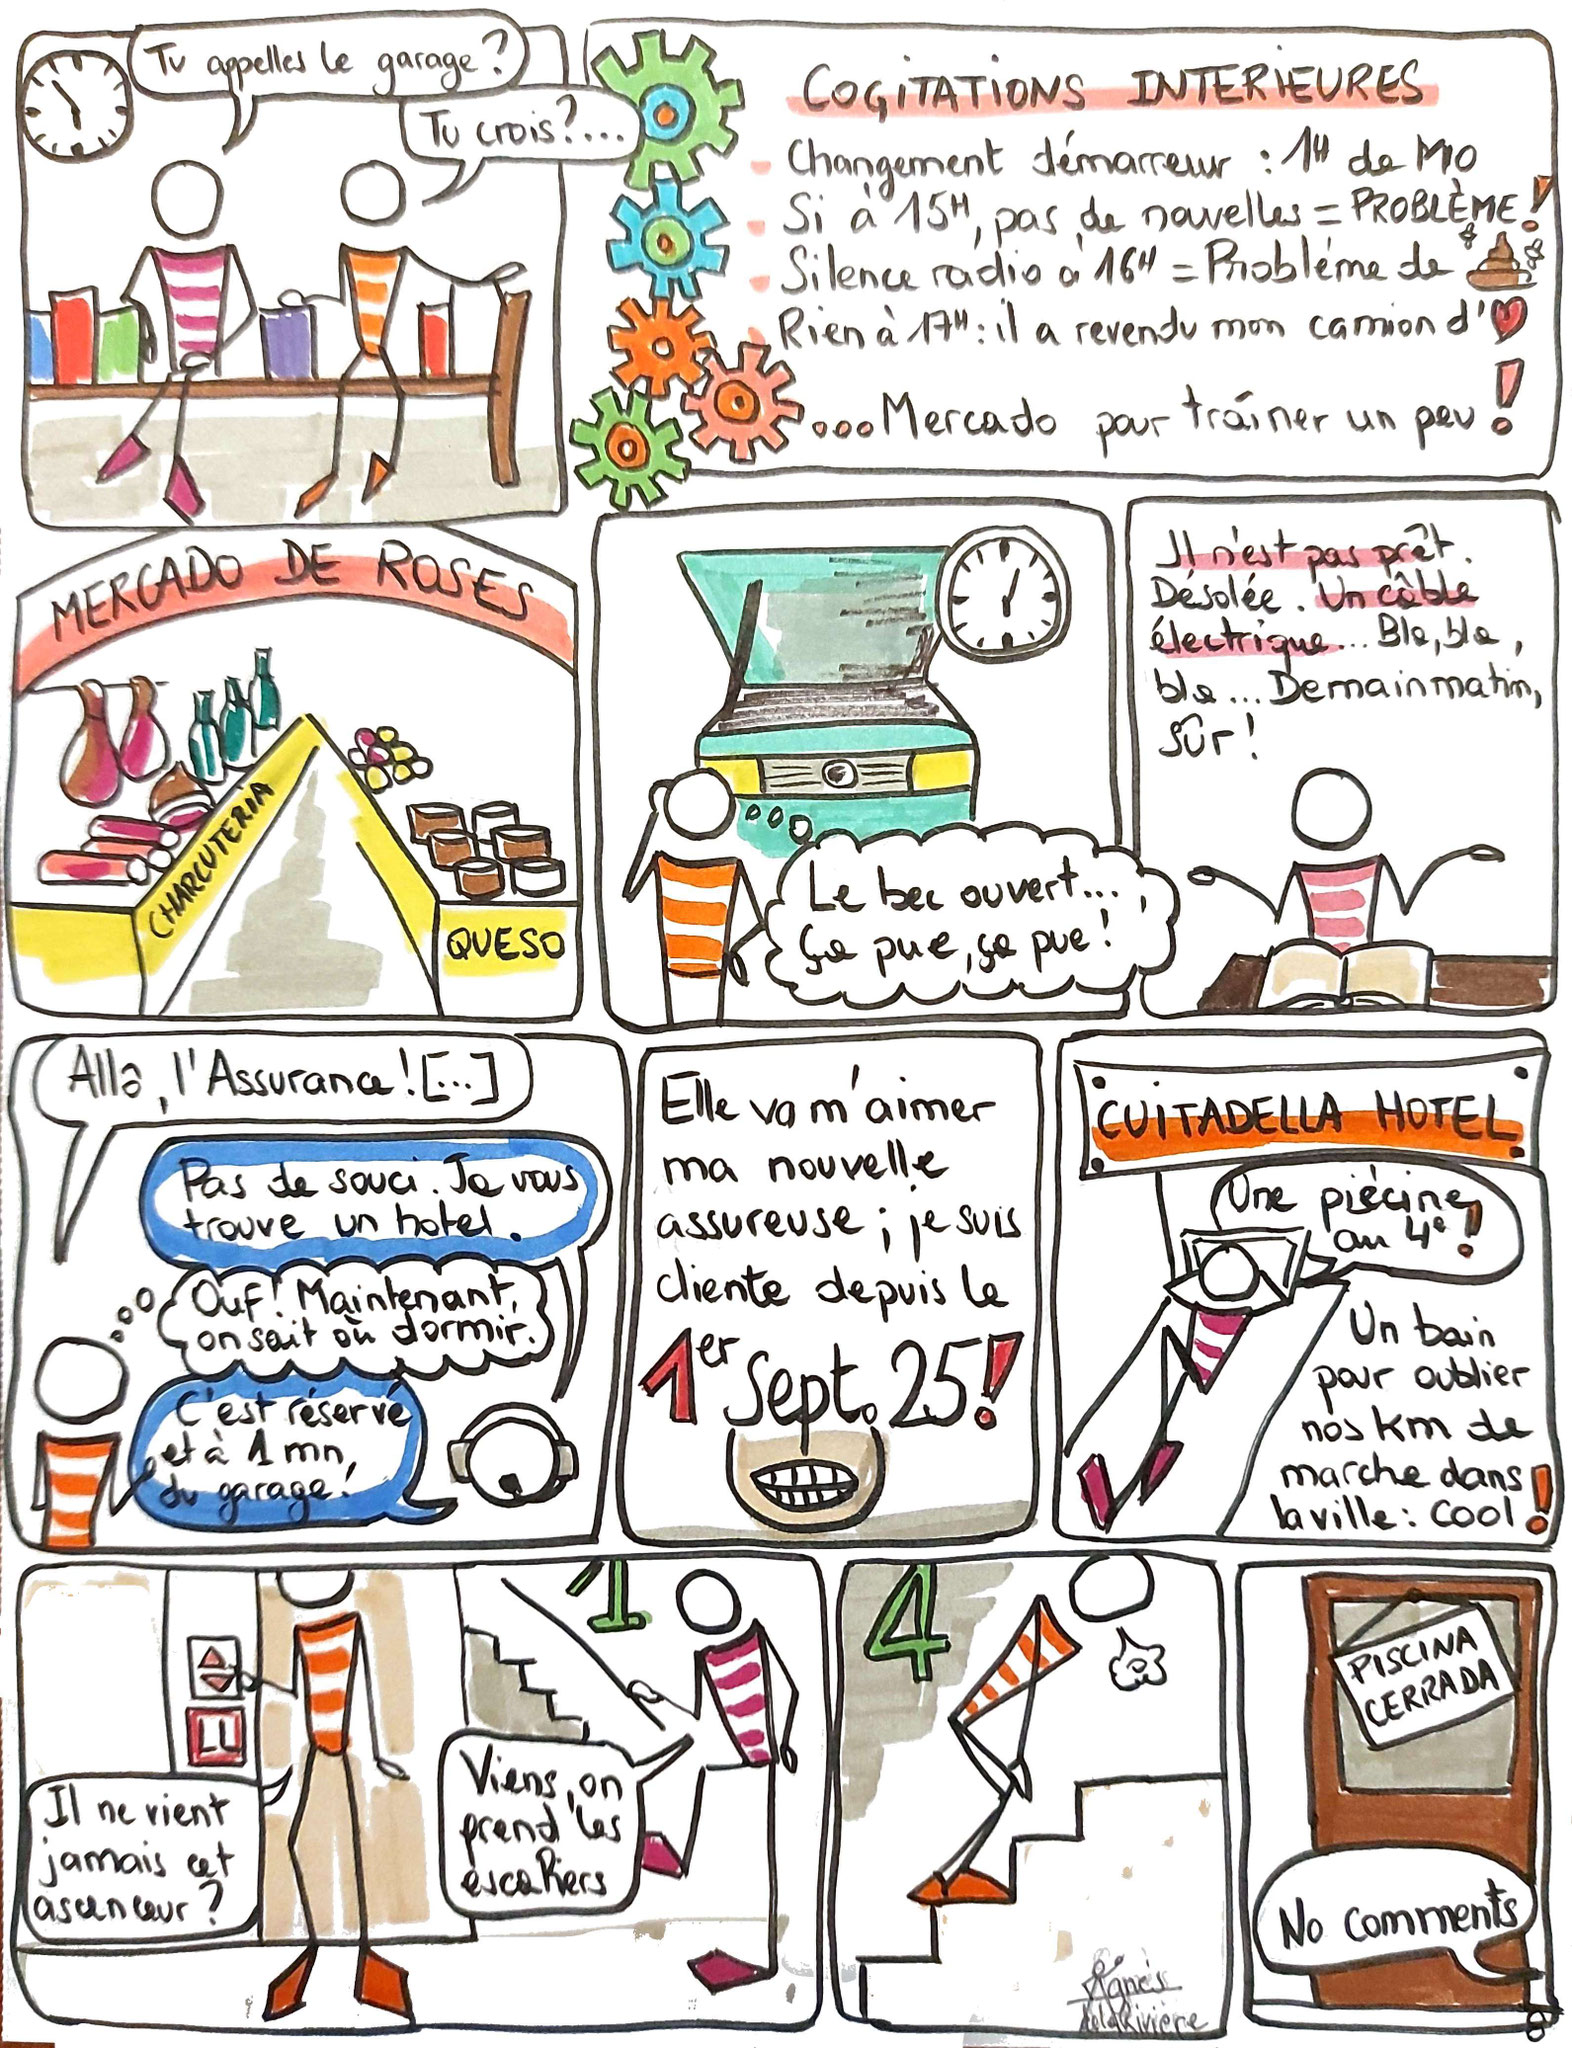 Tu appelles le garage?
Tu crois?...
COGITATIONS INTERIEURES
- Changement démarreur : 1H de MO
- Si à 15H, pas de nouvelles = PROBLÈME!
- Silence radio à 16H = Problème de
- Rien à 17H : il a revendu mon camion d'
...Mercado pour traîner un peu!
MERCADO DE ROSES
CHARCUTERIA
QUESO
Le bec ouvert...
ça pue, ça pue!
Il n'est pas prêt.
Désolée. Un câble
électrique... Bla, bla,
bla... Demain matin,
sûr!
Allô, l'Assurance! [...]
Pas de souci. Je vous
trouve un hotel.
Ouf! Maintenant,
on sait où dormir.
C'est réservé
et à 1 mn
du garage!
Elle va m'aimer
ma nouvelle
assureuse; je suis
cliente depuis le
1er Sept. 25!
CUITADELLA HOTEL
Une piécine
au 4e!
Un bain
pour oublier
nos km de
marche dans
la ville: cool!
Il ne vient
jamais cet
ascenceur?
1
Viens, on
prend les
escaliers
4
PISCINA
CERRADA
No comments
Agnès
de la Rivière